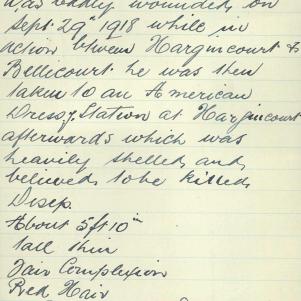 was badly wounded on
Sept. 29th 1918 while in
action between Hargincourt &
Bellicourt he was then
taken to an American
Dressg. Station at Hargincourt
afterwards which was
heavily shelled and
believed to be killed
Disep.
About 5 ft 10 in
tall thin
Fair Complexion
Red Hair